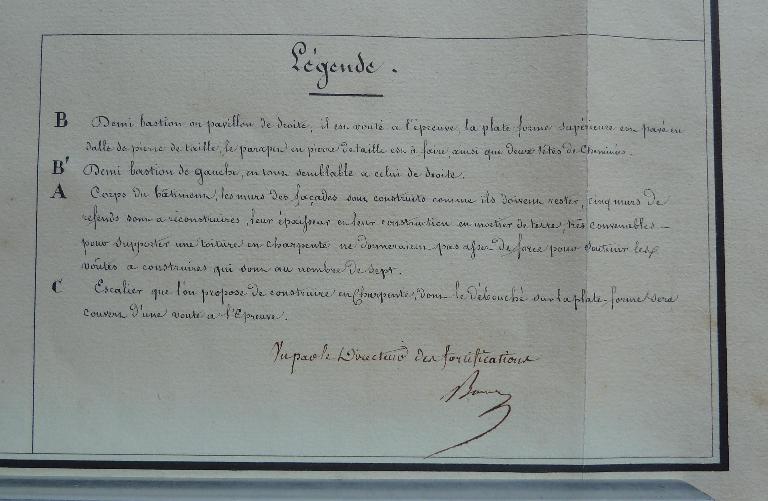 Légende.
B Demi bastion ou pavillon de droite, il est vouté a l'épreuve, la plate forme supérieure est pavé en
dalle de pierre de taille, le parapet en pierre de taille est à faire, ainsi que deux têtes de Cheminés.
B' Demi bastion de gauche, en tout semblable a celui de droite.
A Corps du bâtiment, les murs des façades sont construits comme ils doivent rester, cinq murs de
refends sont a reconstruires, leur épaisseur et leur construction en mortier de terre, très convenables
pour supporter une toiture en charpente ne donneraient pas assez de force pour soutenir les
voutes a construires qui sont au nombre de sept.
C Escalier que l'on propose de construire en Charpente, dont le débouché sur la plate-forme sera
couvert d'une voute a l'Epreuve.
Vu par le Directeur des fortifications